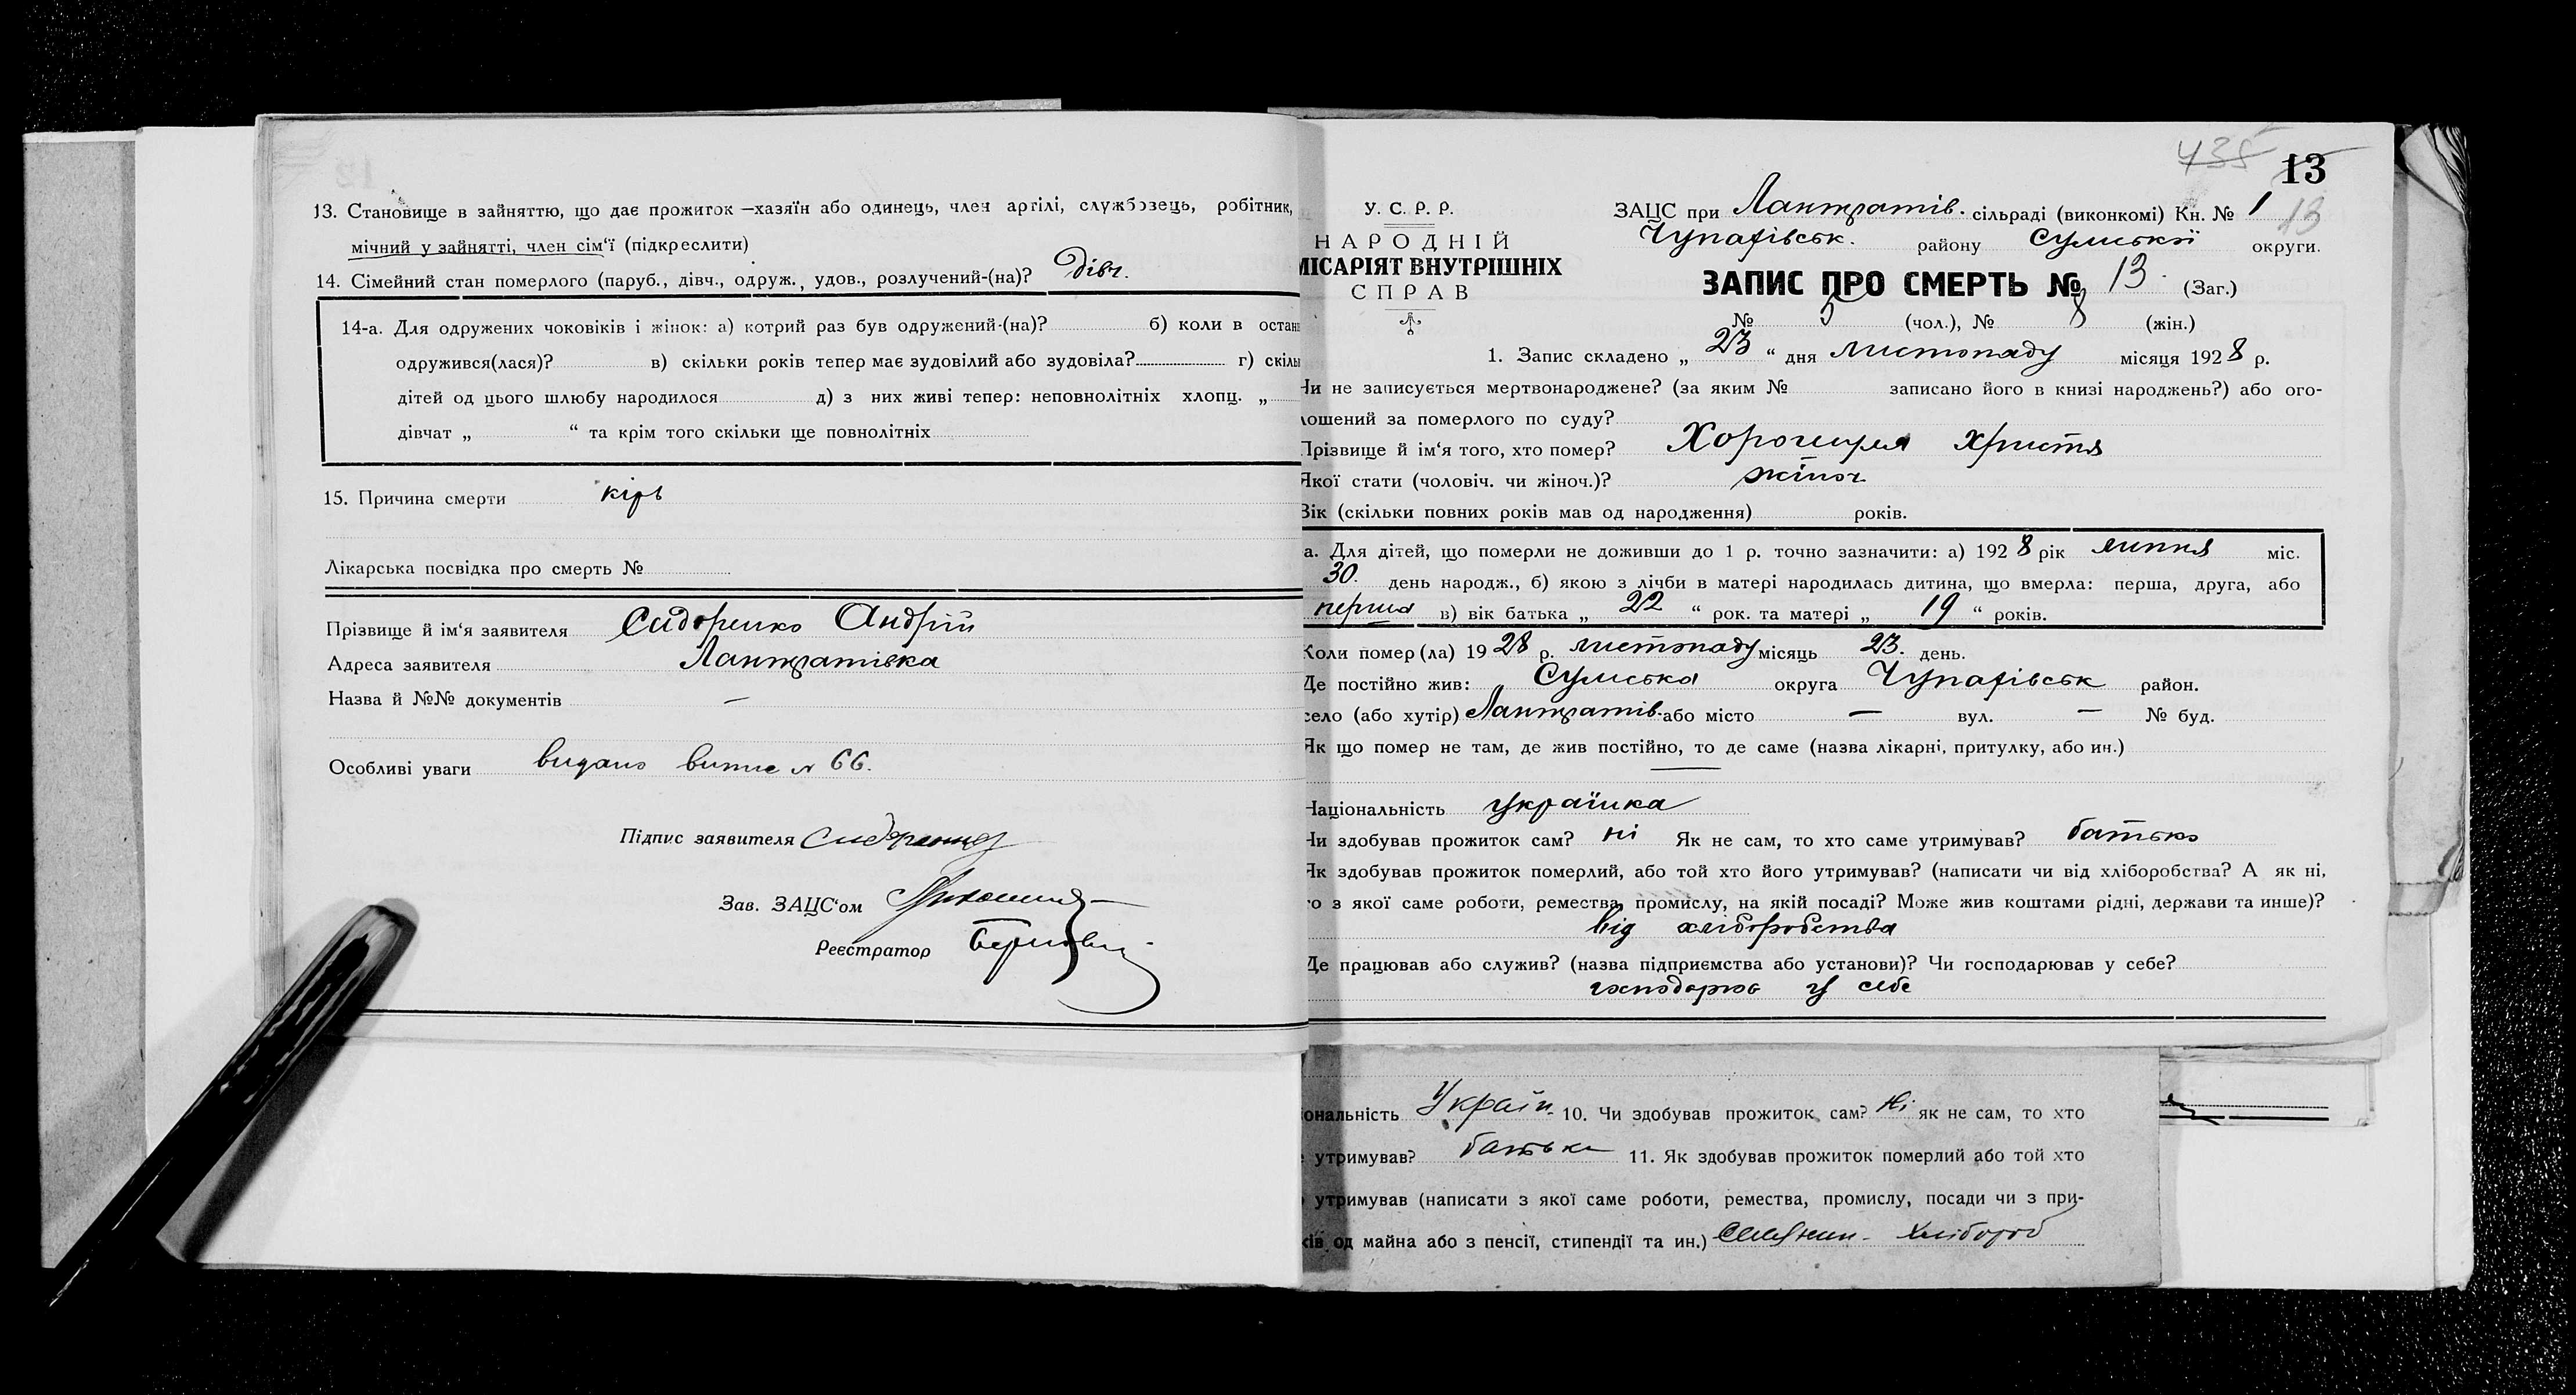 13. Становище в зайняттю, що дає прожиток —хазяїн або одинець, член артілі, службовець, робітник,
мічний у зайнятті, член сім'ї (підкреслити)
14. Сімейний стан померлого (паруб., дівч., одруж., удов., розлучений-(на)? дівч.
14-а. Для одружених чоковіків і жінок: а) котрий раз був одружений-(на)? б) коли в остан
одружився(лася)? в) скільки років тепер має зудовілий або зудовіла? г) скіль
дітей од цього шлюбу народилося д) з них живі тепер: неповнолітніх хлопц. „
дівчат „ “ та крім того скільки ще повнолітніх
15. Причина смерти кірь
Лікарська посвідка про смерть №
Прізвище й ім'я заявителя Сидоренко Андрій
Адреса заявителя Лантратівка
Назва й №№ документів —
Особливі уваги видано витяг № 66.
Підпис заявителя
Зав. ЗАЦС'ом
Реєстратор
435 13
У. С. Р. Р.
НАРОДНІЙ
МІСАРІЯТ ВНУТРІШНІХ
СПРАВ
ЗАЦС при Лантратів. сільраді (виконкомі) Кн. № 1 13
Чупахівськ. району Сумської округи.
ЗАПИС ПРО СМЕРТЬ № 13. (Заг.)
№ 5 (чол.), № 8 (жін.)
1. Запис складено „ 23 “ дня листопаду місяця 1928 р.
Чи не записується мертвонароджене? (за яким № записано його в книзі народжень?) або ого-
лошений за померлого по суду?
Прізвище й ім'я того, хто помер? Христя
Якої стати (чоловіч. чи жіноч.)? жіноч
Вік (скільки повних років мав од народження) років.
а. Для дітей, що померли не доживши до 1 р. точно зазначити: а) 1928 рік липня міс.
30. день народж., б) якою з лічби в матері народилась дитина, що вмерла: перша, друга, або
перша в) вік батька „ 22 “ рок. та матері „ 19 “ років.
Коли помер(ла) 19 28 р. листопаду місяць 23. день.
Де постійно жив: Сумська округа Чупахівськ район.
село (або хутір) Лантратів. або місто — вул. — № буд.
Як що помер не там, де жив постійно, то де саме (назва лікарні, притулку, або ин.)
—
Національність українка
Чи здобував прожиток сам? ні Як не сам, то хто саме утримував? батько
Як здобував прожиток померлий, або той хто його утримував? (написати чи від хліборобства? А як ні,
то з якої саме роботи, ремества, промислу, на якій посаді? Може жив коштами рідні, держави та инше)?
від хліборобства
Де працював або служив? (назва підприємства або установи)? Чи господарював у себе?
господарює у себе
ональність Україн. 10. Чи здобував прожиток сам? Ні як не сам, то хто
утримував? батьки 11. Як здобував прожиток померлий або той хто
утримував (написати з якої саме роботи, ремества, промислу, посади чи з при-
ків од майна або з пенсії, стипендії та ин.) Селянин - Хлібороб